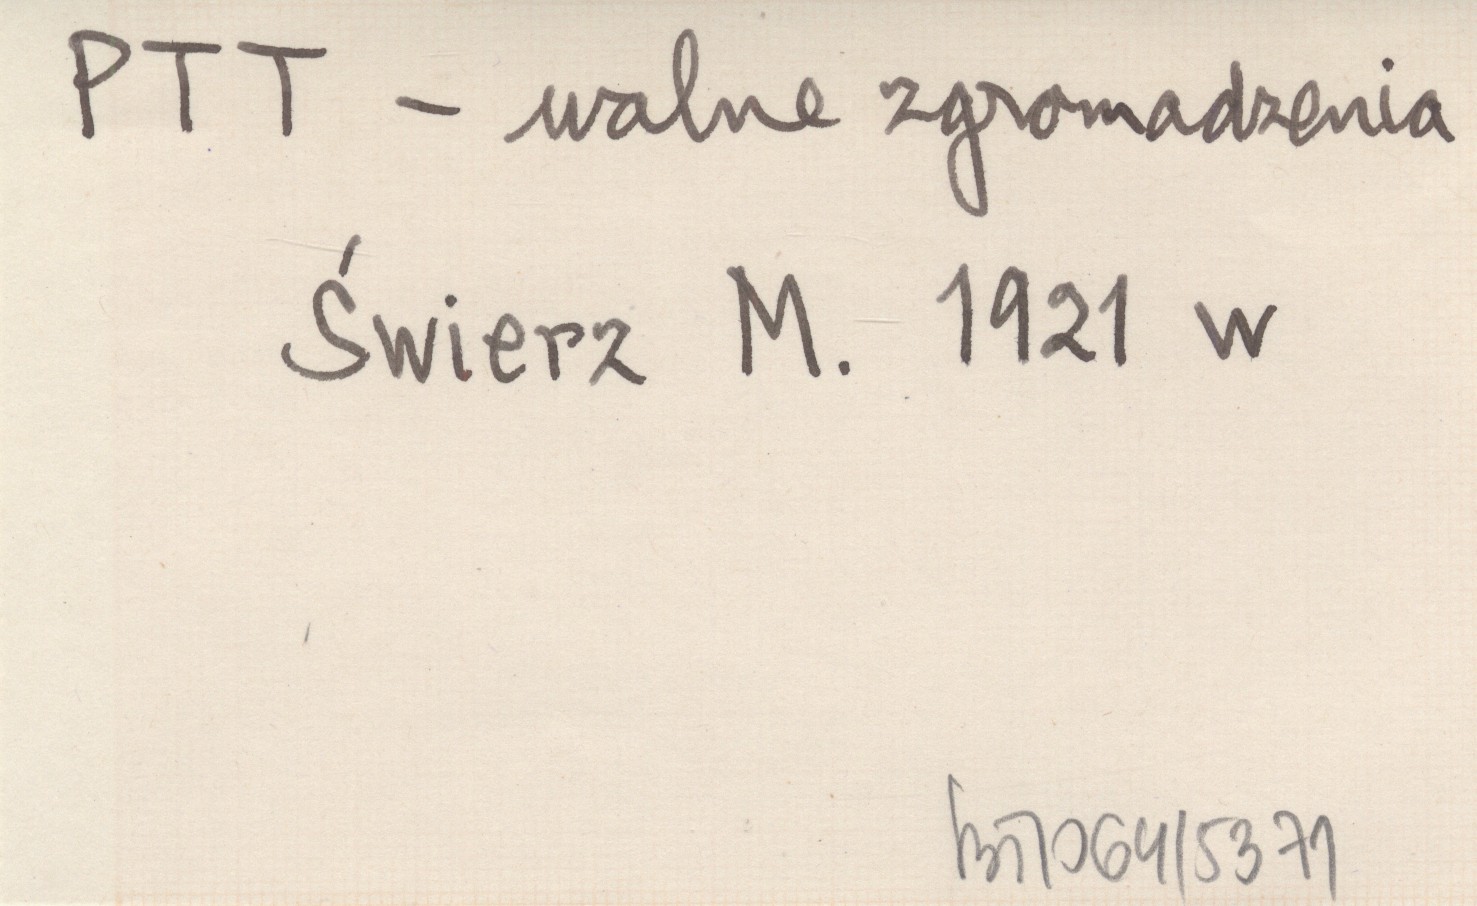 PTT - walne zgromadzenia
Świerz M. 1921 w